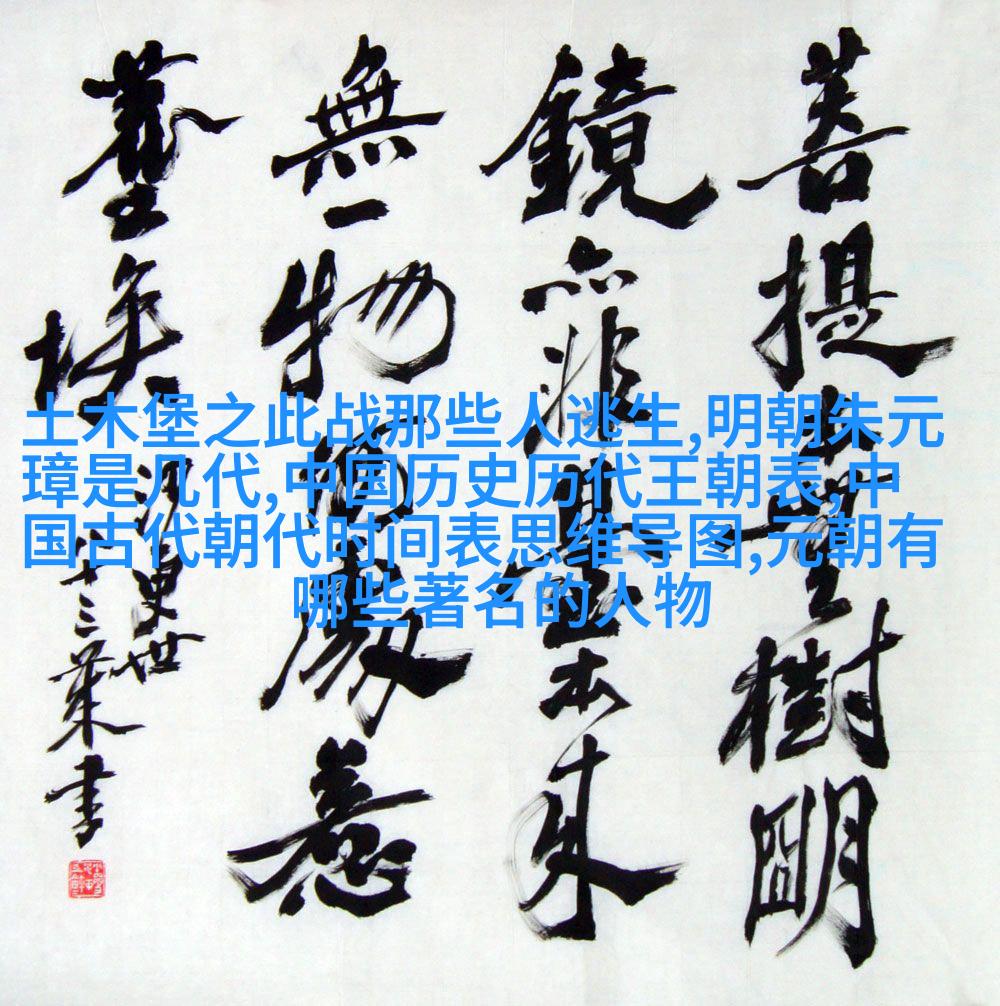 土木堡之此战那些人逃生,明朝朱元
璋是几代,中国历史历代王朝表,中
国古代朝代时间表思维导图,元朝有
哪些著名的人物
菩提本無樹明
鏡亦非臺本來
無一物何處惹
塵埃
史世
十三葉書